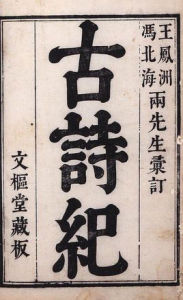 王鳳洲
馮北海
兩先生彙訂
古詩紀
文樞堂藏板